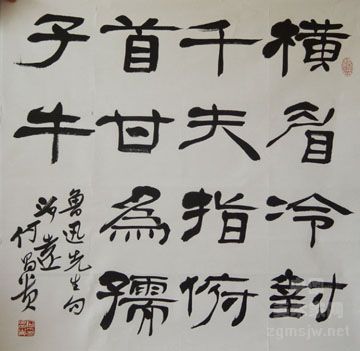 橫眉冷對
千夫指俯
首甘為孺
子牛
魯迅先生句
zgmsjw.net